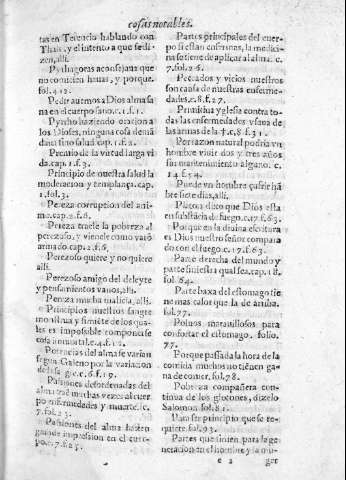 cosas notables.
tas en Terencio hablando con
Thais, y el intento a que se di-
zen, alli.
Pythagoras aconsejaua que
no comiessen hauas, y porque.
fol. 412.
Pedir auemos a Dios alma sa
na en el cuerpo sano. c. 1. f. 1.
Pyrrho haziendo oracion a
los Dioses, ninguna cosa demā
daua sino salud cap. 1. f. 2.
Premio de la virtud larga vi
da. cap. 1. f. 3.
Principio de nuestra salud la
moderacion y templança. cap.
1. fol. 3.
Pereza corruption del ani-
mo. cap. 2. f. 6.
Pereza traele la pobreza al
perezoso, y vienele como varō
armado cap. 2. f. 6.
Perezoso quiere y no quiere
alli.
Perezoso amigo del deleyte
y pensamientos vanos, alli.
Pereza mucha malicia, alli.
Principios nuestros sangre
monstrua y simiēte de los qua-
les es impossible componerse
cosa immortal. c. 4. f. 12.
Potencias del alma se varian
segun Galeno por la variacion
de la
Passiones desordenadas del
alma traē muchas vezes al cuer
po enfermedades y muerte. c.
7. fol. 23.
Passiones del alma hazen
grande impression en el cuer-
po. c. 7. f. 25.
Partes principales del cuer-
po si estan enfermas, la medici-
na se tiene de aplicar al alma. c.
7. fol. 26.
Peccados y vicios nuestros
son causa de nuestras enferme-
dades. c. 8. f. 27.
Primitiua yglesia contra to-
das las enfermedades vsaua de
las armas de la f. c. 8 f. 31.
Por razon natural podria vn
hombre viuir dos y tres años
sin mantenimiento alguno. c.
14. f. 54.
Puede vn hombre çufrir hā
bre siete dias, alli.
Platon dixo que Dios esta
en substācia de fuego. c. 17. f. 63.
Porque en la diuina escritura
es Dios nuestro señor compara
do con el fuego. c. 17. f. 63.
Parte derecha del mundo y
parte siniestra qual sea. cap. 18.
fol. 64.
Parte baxa del estomago tie
ne mas calor que la de arriba.
fol. 77.
Poluos marauillosos para
confortar el estomago. folio.
77.
Porque passada la hora de la
comida muchos no tienen ga-
na de comer. fol. 78.
Pobreza compañera conti-
nua de los glotones, dizelo
Salomon fol. 81.
Para ser principio que se re-
quiere. fol. 93.
Partes que siruen para la ge-
neracion en el hombre y la mu-
e 2 ger